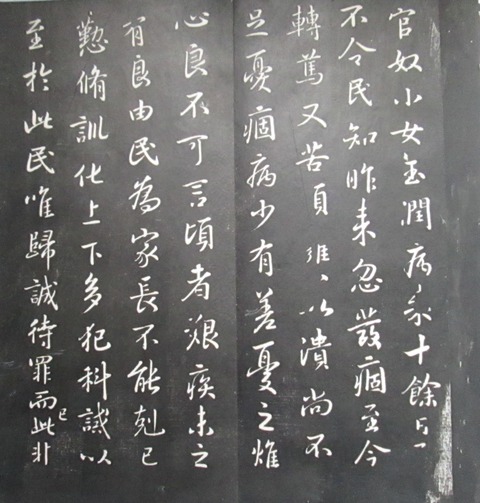 官奴小女玉潤病來十餘日了
不令民知昨来忽發痼至今
轉篤又苦頭癰、以潰尚不
足憂痼病少有差憂之燋
心良不可言頃者艱疾未之
有良由民為家長不能剋己
懃脩訓化上下多犯科誡以
至於此民唯歸誠待罪而已此非